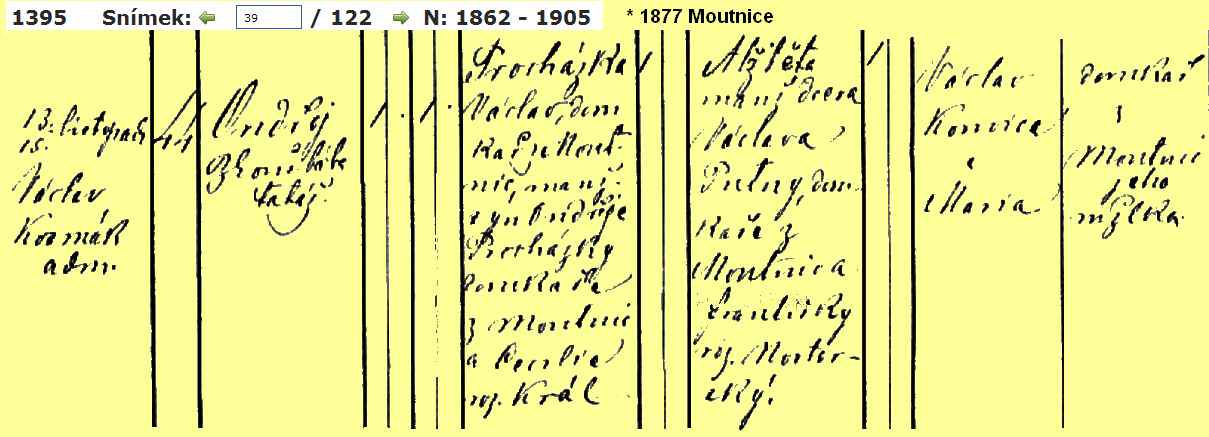 1395 Snímek: 39 / 122 N: 1862 - 1905 * 1877 Moutnice
13. listopad
15.
Václav
Kosmák
adm.
44
Ondřej
zkouš. bába
taktéž.
1 · 1 ·
Procházka
Václav, dom
kař z Mout-
nic, manž.
syn Ondřeje
Procházky
domkaře
z Moutnic
a Cecilie
roz. Král
1
Alžběta
manž. dcera
Václava
Putny, dom-
kaře z
Moutnic a
Františky
roz.
ský.
1
Václav
Konvica
a
Maria
domkař
z
Moutnic
jeho
mželka.